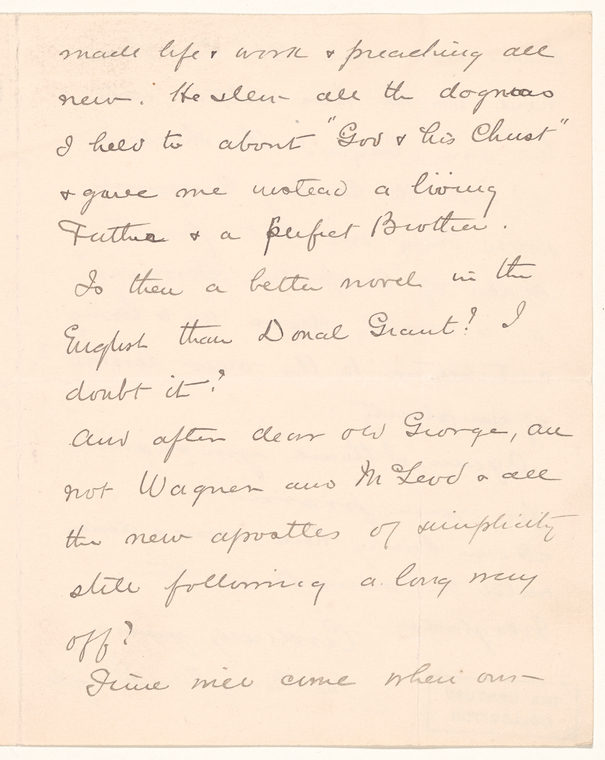 made life & work & preaching all
new. He slew all the dogmas
I held to about "God & his Christ"
& gave me instead a living
Father & a perfect Brother.
Is there a better novel in the
English than Donal Grant? I
doubt it?
And after dear old George, are
not Wagner and McLeod & all
the new apostles of simplicity
still following a long way
off?
Time will come when our